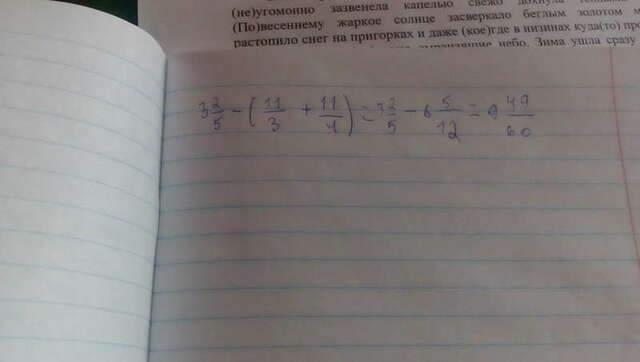 (не)угомонно зазвенела капелью свежо
(По)весеннему жаркое солнце засверкало беглым золотом
растопило снег на пригорках и даже (кое)где в низинах куда(то)
небо. Зима ушла сразу
3 2/5 - (11/3 + 11/4) = 3 2/5 - 6 5/12 = 9 49/60